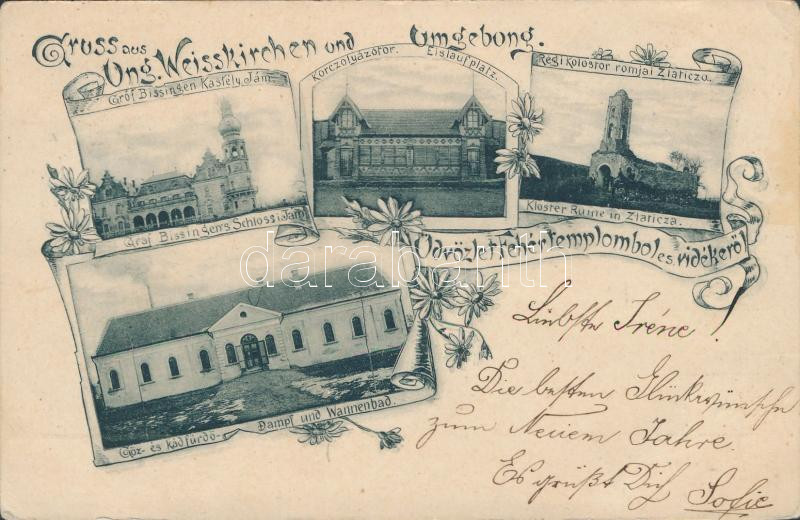 Gruss aus
Ung. Weisskirchen und Umgebong.
Gróf Bissingen Kastély, Jám.
Gráf Bissingen's Schloss i. Jam
Korczolyázótor. Eislaufplatz.
Régi Kolostor romjai Zlaticza.
Kloster Ruine in Zlaticza.
Üdvözlet Fehértemplomból és vidékéről!
Göz- és kádfürdő-
Dampf und Wannenbad.
darabanth
Liebste Iréne!
Die besten Glückwünsche
zum Neuem Jahre.
Es grüßt Dich
Sofie